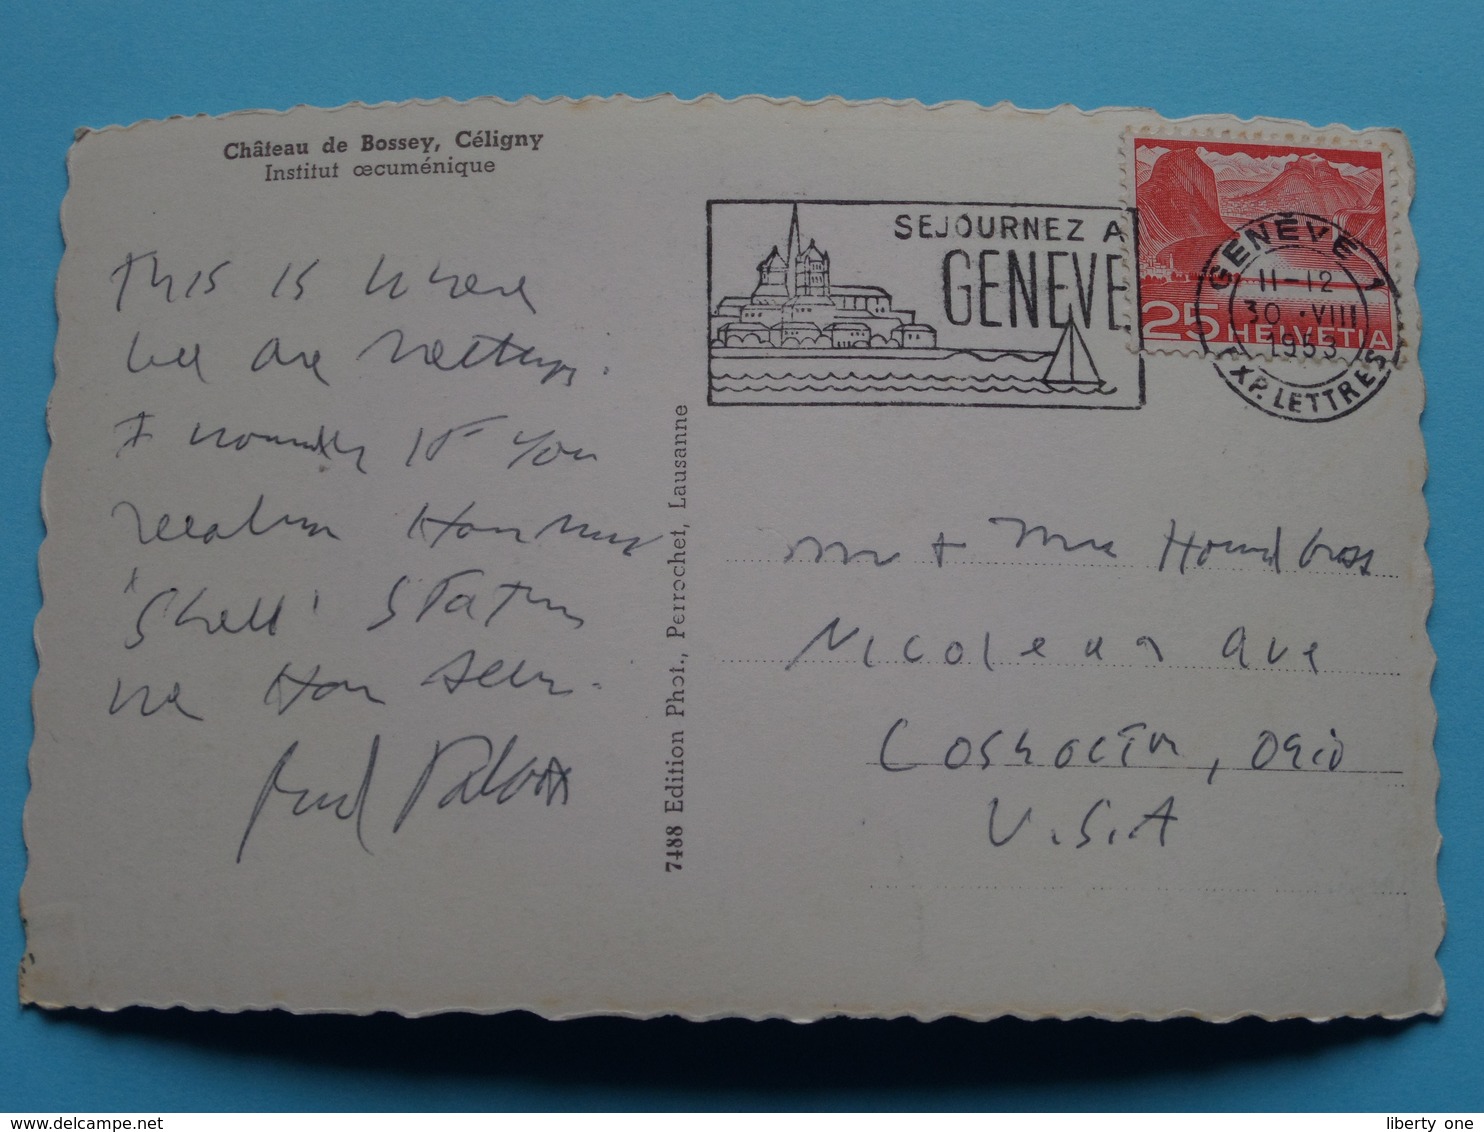 Château de Bossey, Céligny
Institut œcuménique
This is where
we are meeting.
I wonder if you
realize how many
'Shell' Stations
we have seen.
Paul
7488 Edition Phot., Perrochet, Lausanne
SEJOURNEZ A
GENEVE
GENÈVE 1
11-12
30.VIII
1953
EXP. LETTRES
25 HELVETIA
Mr + Mrs
Ave
Coshocton, Ohio
U.S.A
delcampe.net
liberty one